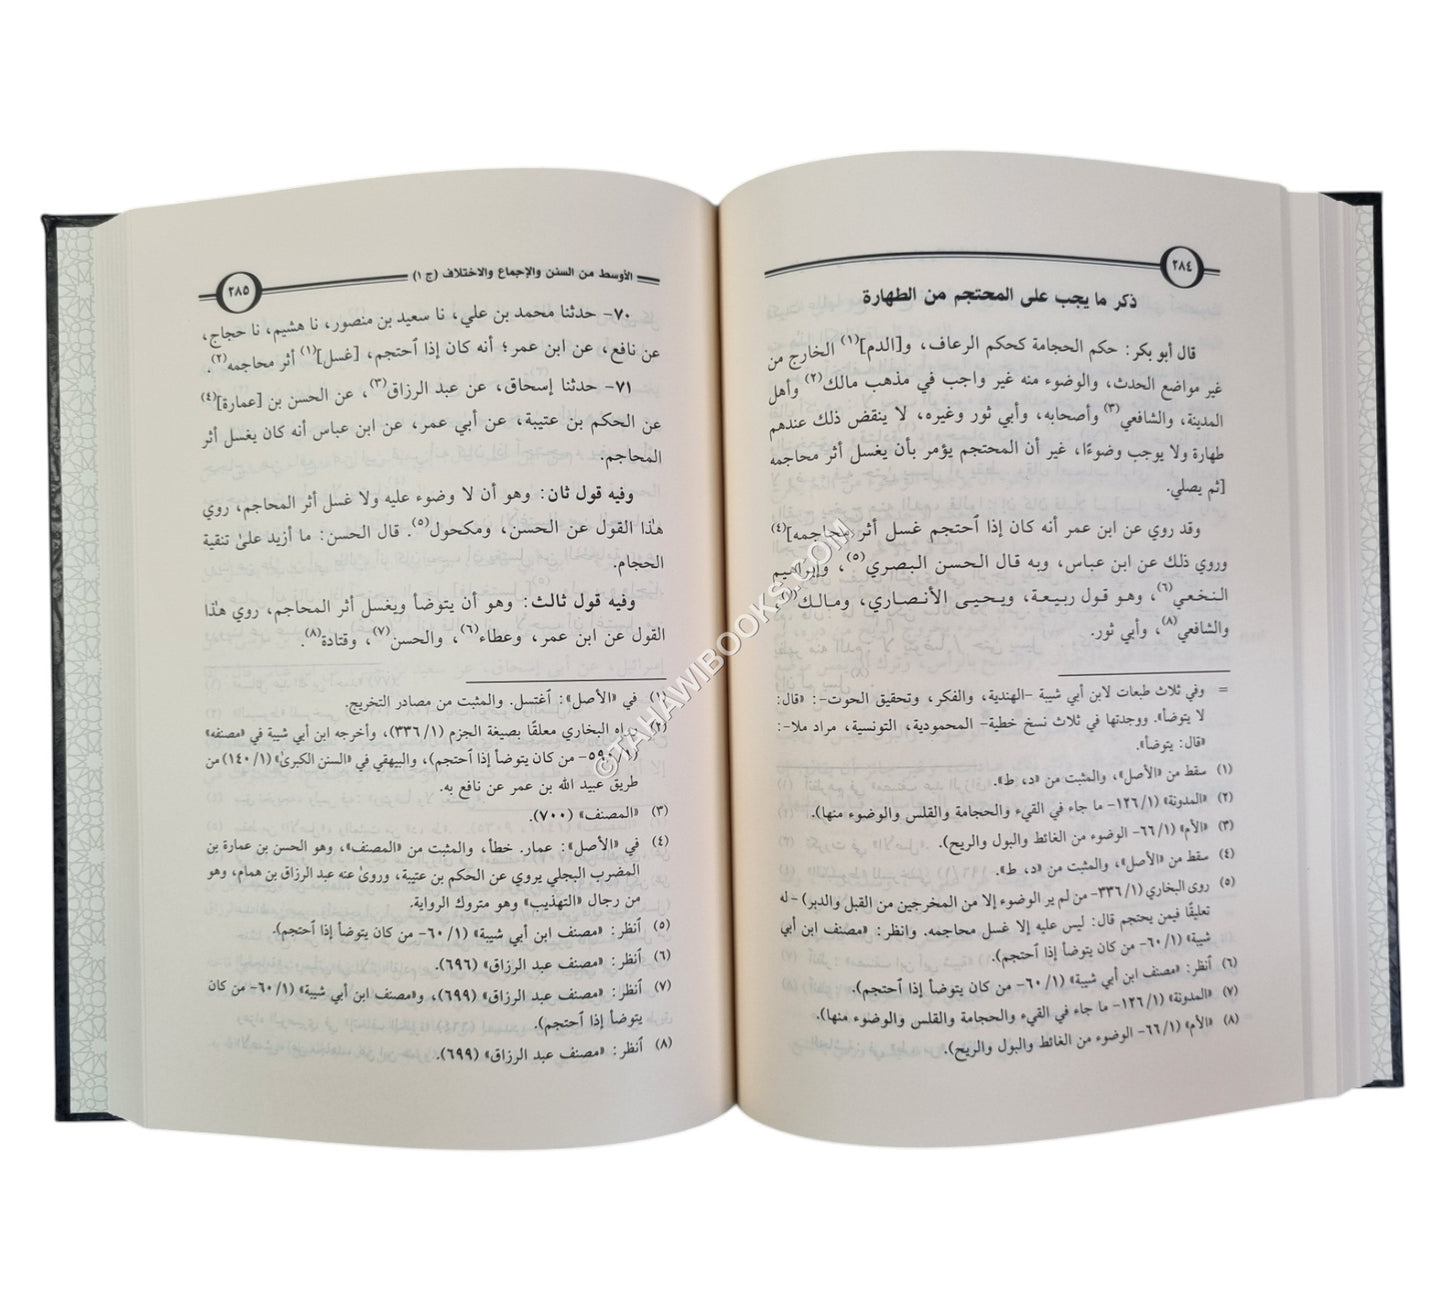 ٢٨٤
ذكر ما يجب على المحتجم من الطهارة
قال أبو بكر: حكم الحجامة كحكم الرعاف، و[الدم](١) الخارج من
غير مواضع الحدث، والوضوء منه غير واجب في مذهب مالك(٢) وأهل
المدينة، والشافعي(٣) وأصحابه، وأبي ثور وغيره، لا ينقض ذلك عندهم
طهارة ولا يوجب وضوءًا، غير أن المحتجم يؤمر بأن يغسل أثر محاجمه
[ثم يصلي.
وقد روي عن ابن عمر أنه كان إذا ٱحتجم غسل أثر محاجمه](٤)
وروي ذلك عن ابن عباس، وبه قال الحسن البصري(٥)، وإبراهيم
النخعي(٦)، وهو قول ربيعة، ويحيى الأنصاري، ومالك(٧)،
والشافعي(٨)، وأبي ثور.
= وفي ثلاث طبعات لابن أبي شيبة -الهندية، والفكر، وتحقيق الحوت-: «قال:
لا يتوضأ». ووجدتها في ثلاث نسخ خطية- المحمودية، التونسية، مراد ملا-:
«قال: يتوضأ».
(١) سقط من «الأصل»، والمثبت من «د، ط».
(٢) «المدونة» (١/ ١٢٦- ما جاء في القيء والحجامة والقلس والوضوء منها).
(٣) «الأم» (١/ ٦٦- الوضوء من الغائط والبول والريح).
(٤) سقط من «الأصل»، والمثبت من «د، ط».
(٥) روى البخاري (١/ ٣٣٦- من لم ير الوضوء إلا من المخرجين من القبل والدبر) -له
تعليقًا فيمن يحتجم قال: ليس عليه إلا غسل محاجمه. وانظر: «مصنف ابن أبي
شيبة» (١/ ٦٠- من كان يتوضأ إذا ٱحتجم).
(٦) ٱنظر: «مصنف ابن أبي شيبة» (١/ ٦٠- من كان يتوضأ إذا ٱحتجم).
(٧) «المدونة» (١/ ١٢٦- ما جاء في القيء والحجامة والقلس والوضوء منها).
(٨) «الأم» (١/ ٦٦- الوضوء من الغائط والبول والريح).
الأوسط من السنن والإجماع والاختلاف (ج ١)
٢٨٥
٧٠- حدثنا محمد بن علي، نا سعيد بن منصور، نا هشيم، نا حجاج،
عن نافع، عن ابن عمر؛ أنه كان إذا ٱحتجم، [غسل](١) أثر محاجمه(٢).
٧١- حدثنا إسحاق، عن عبد الرزاق(٣)، عن الحسن بن [عمارة](٤)
عن الحكم بن عتيبة، عن أبي عمر، عن ابن عباس أنه كان يغسل أثر
المحاجم.
وفيه قول ثان: وهو أن لا وضوء عليه ولا غسل أثر المحاجم، روي
هذا القول عن الحسن، ومكحول(٥). قال الحسن: ما أزيد على تنقية
الحجام.
وفيه قول ثالث: وهو أن يتوضأ ويغسل أثر المحاجم، روي هذا
القول عن ابن عمر، وعطاء(٦)، والحسن(٧)، وقتادة(٨).
(١) في «الأصل»: ٱغتسل. والمثبت من مصادر التخريج.
(٢) رواه البخاري معلقًا بصيغة الجزم (١/ ٣٣٦)، وأخرجه ابن أبي شيبة في «مصنفه»
(١/ ٥٩٠- من كان يتوضأ إذا ٱحتجم)، والبيهقي في «السنن الكبرى» (١/ ١٤٠) من
طريق عبيد الله بن عمر عن نافع به.
(٣) «المصنف» (٧٠٠).
(٤) في «الأصل»: عمار. خطأ، والمثبت من «المصنف»، وهو الحسن بن عمارة بن
المضرب البجلي يروي عن الحكم بن عتيبة، وروى عنه عبد الرزاق بن همام، وهو
من رجال «التهذيب» وهو متروك الرواية.
(٥) ٱنظر: «مصنف ابن أبي شيبة» (١/ ٦٠- من كان يتوضأ إذا ٱحتجم).
(٦) ٱنظر: «مصنف عبد الرزاق» (٦٩٦).
(٧) ٱنظر: «مصنف عبد الرزاق» (٦٩٩)، و«مصنف ابن أبي شيبة» (١/ ٦٠- من كان
يتوضأ إذا ٱحتجم).
(٨) ٱنظر: «مصنف عبد الرزاق» (٦٩٩).
©TAHAWIBOOKS.COM